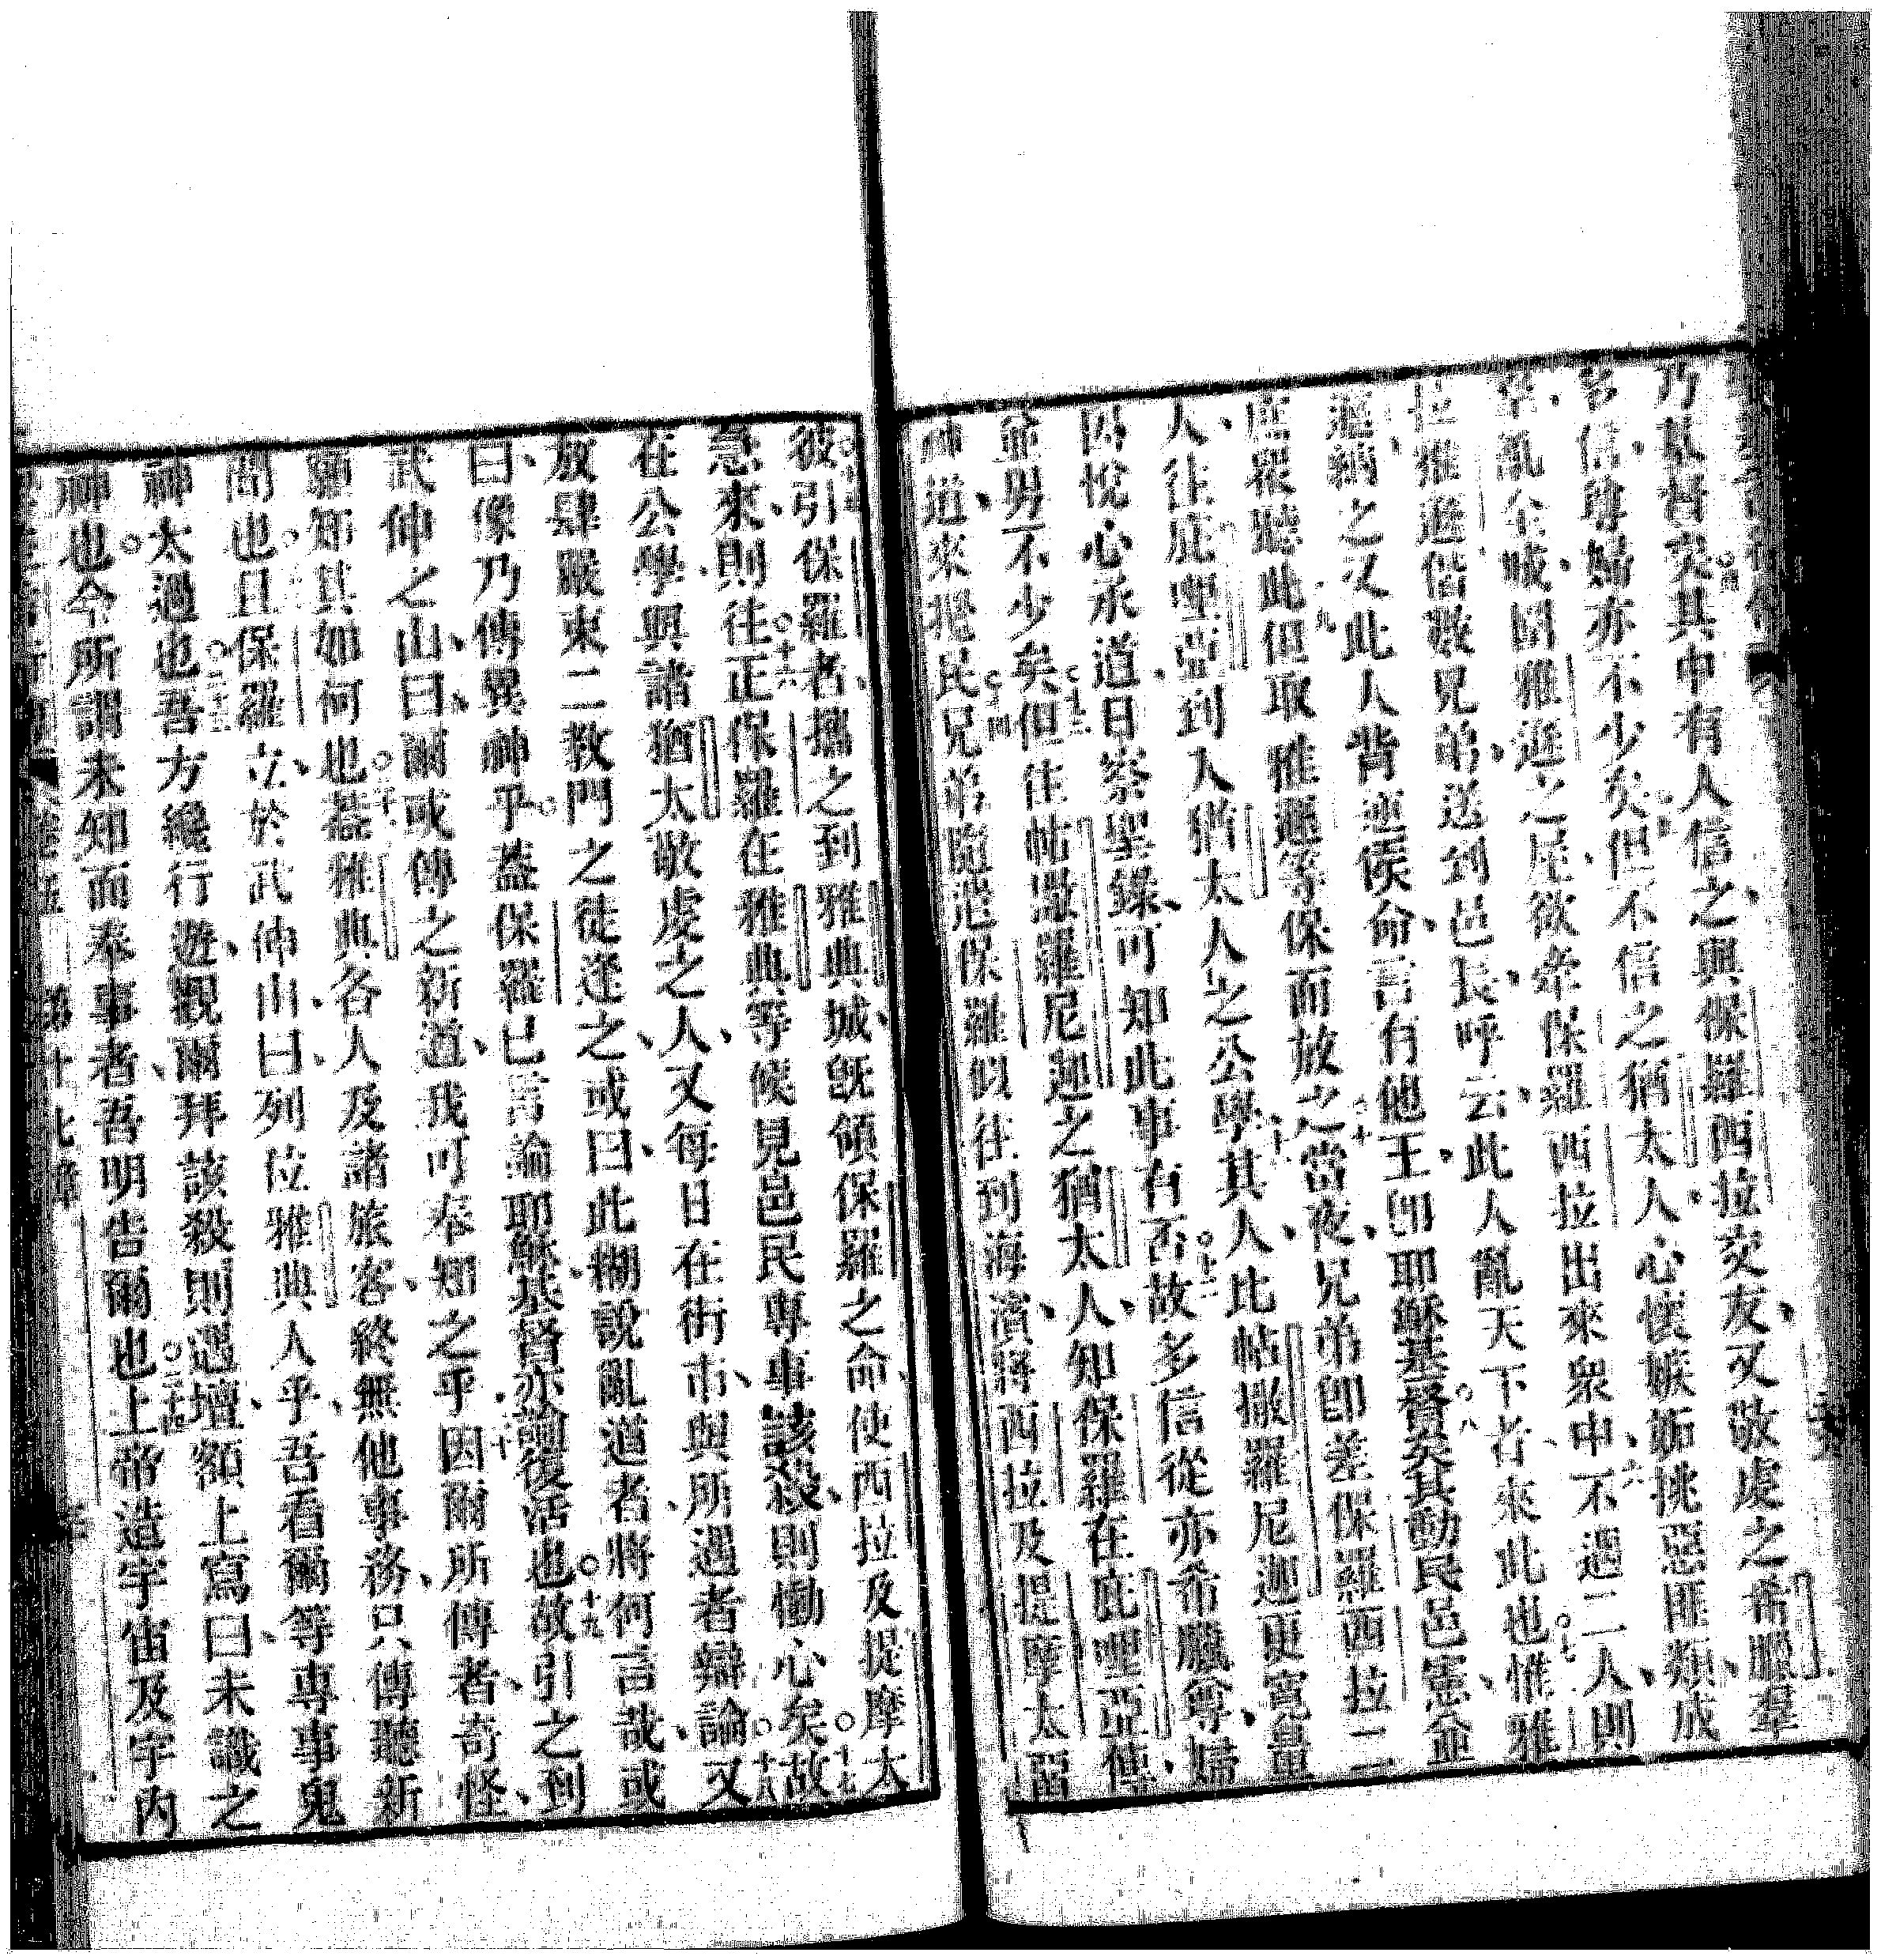 乃基督矣○四其中有人信之、與保羅西拉交友、又敬虔之希臘羣
多信、尊婦亦不少矣○五但不信之猶太人、心懷嫉妬、挑惡匪類、成
羣、亂全城、圍雅遜之屋、欲牽保羅西拉出來眾中○六不遇二人、則
拉雅遜偕數兄弟、送到邑長、呼云、此人亂天下者、來此也○七惟雅
遜納之、又此人背逆侯命、言有他王、即耶穌基督矣○八其動民邑憲、僉
庶眾聽此○九但取雅遜等保而放之○十當夜、兄弟即差保羅西拉二
人、往庇哩亞、到入猶太人之公學○十一其人、比帖撒羅尼迦更寬量、
因悅心承道、日察聖錄、可知此事有否○十二故多信從、亦希臘尊婦、
並男不少矣○十三但住帖撒羅尼迦之猶太人、知保羅在庇哩亞傳
神道、來擾民○十四兄弟隨遣保羅似往到海濱、將西拉及提摩太留
彼○十五引保羅者、攜之到雅典城、既領保羅之命、使西拉及提摩太
急來、則往○十六正保羅在雅典等候、見邑民專事該殺、則慟心矣○十七故
在公學與諸猶太敬虔之人、又每日在街市、與所遇者辯論○十八又
放肆嚴束二教門之徒逢之、或曰、此糊說亂道者、將何言哉、或
曰、像乃傳異神乎、蓋保羅已言論耶穌基督、亦論復活也○十九故引之到
武仲之山、曰、爾或傳之新道、我可奉知之乎○二十因爾所傳者奇怪、
願知其如何也○二十一蓋雅典各人、及諸旅客、終無他事務、只傳聽新
聞也○二十二且保羅立於武仲山、曰、列位雅典人乎、吾看爾等專事鬼
神太過也○二十三吾方纔行遊、觀爾拜該殺、則遇壇、額上寫曰、未識之
神也○今所謂未知而奉事者、吾明告爾也○二十四上帝造宇宙及宇內
第十七章